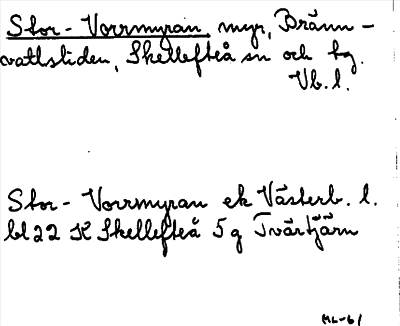 Stor-Vorrmyran, myr, Bränn-
vattsliden, Skellefteå sn och tg.
Vb. l.
Stor-Vorrmyran ek Västerb. l.
bl 22 K Skellefteå 5 g Tvärtjärn
ML-61